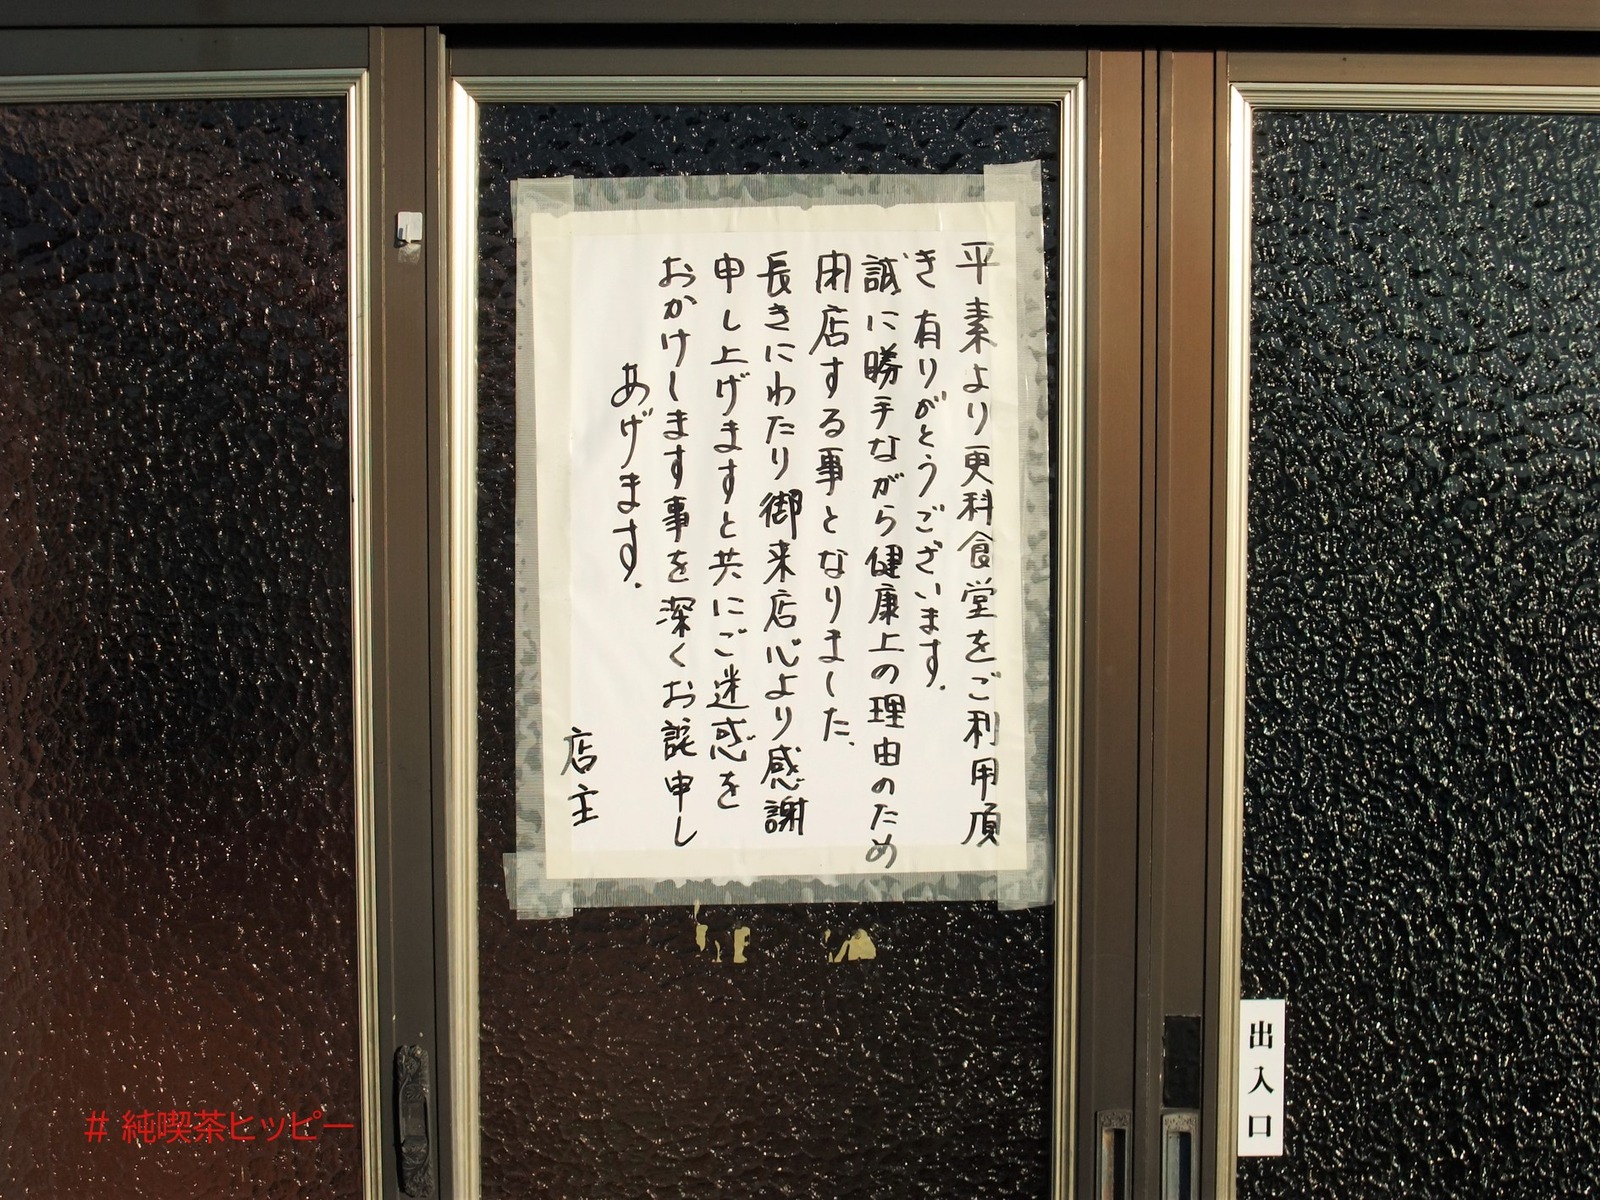 平素より更科食堂をご利用頂
き有りがとうございます.
誠に勝手ながら健康上の理由のため
閉店する事となりました.
長きにわたり御来店心より感謝
申し上げますと共にご迷惑を
おかけします事を深くお詫申し
あげます.
店主
出入口
# 純喫茶ヒッピー